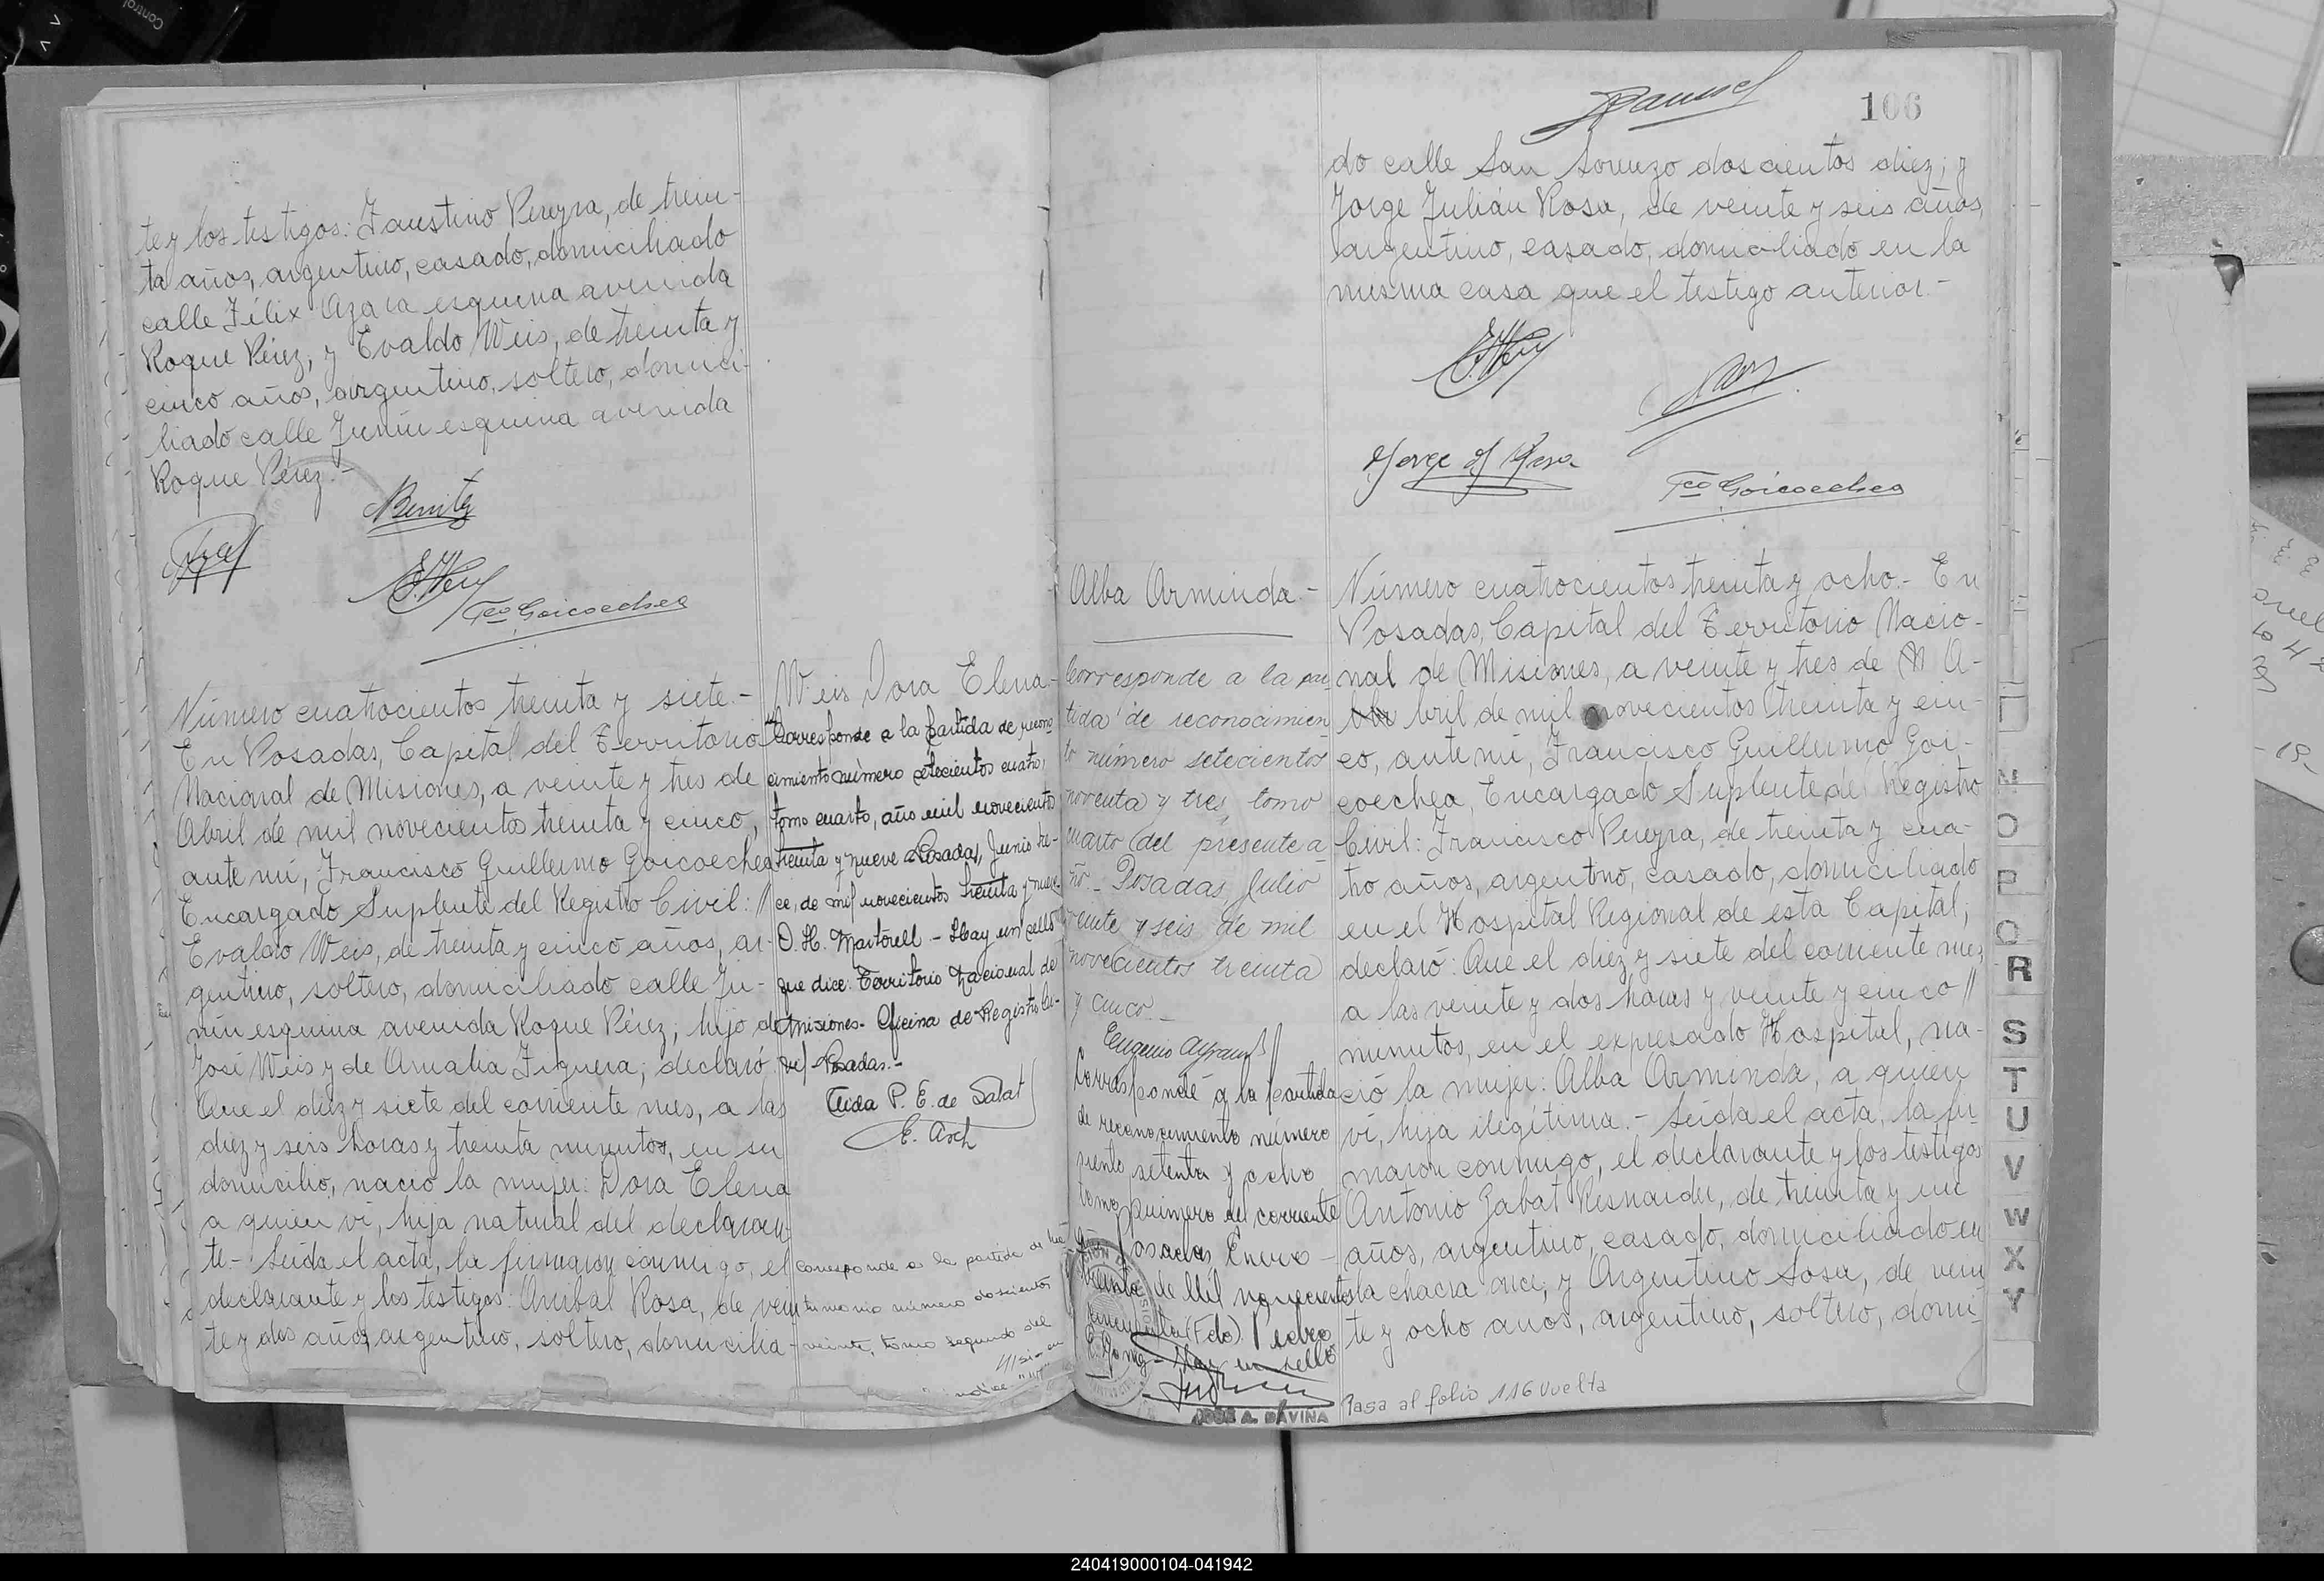 te y los testigos: Faustino Pereyra, de trein-
ta años, argentino, casado, domiciliado
calle Félix Azara esquina avenida
Roque Pérez; y Evaldo Weis, de treinta y
cinco años, argentino, soltero, domici-
liado calle Junín esquina avenida
Roque Pérez.-
Benitez
Fco Goicoechea
Número cuatrocientos treinta y siete.-
En Posadas, Capital del Territorio
Nacional de Misiones, a veinte y tres de
Abril de mil novecientos treinta y cinco,
ante mí, Francisco Guillermo Goicoechea
Encargado Suplente del Registro Civil: //
Evaldo Weis, de treinta y cinco años, ar-
gentino, soltero, domiciliado calle Ju-
nín esquina avenida Roque Pérez; hijo de
José Weis y de Amalia Figuera; declaró:
Que el diez y siete del corriente mes, a las
diez y seis horas y treinta minutos, en su
domicilio, nació la mujer: Dora Elena
a quien vi, hija natural del declaran-
te.- Leída el acta, la firmaron conmigo, el
declarante y los testigos: Anibal Rosa, de vein
te y dos años, argentino, soltero, domicilia-
Weis Dora Elena-
Corresponde a la partida de recono
cimiento número setecientos cuatro,
tomo cuarto, año mil novecientos
treinta y nueve. Posadas, Junio tre-
ce, de mil novecientos treinta y nueve
D. H. Martorell - Hay un sello
que dice: Territorio Nacional de
Misiones- Oficina de Registro Ci-
vil- Posadas.-
Aida P. E. de Salat
E. Arch
corresponde a la partida de
número doscientos
veinte, tomo segundo del
106
do calle San Lorenzo doscientos diez; y
Jorge Julián Rosa, de veinte y seis años,
argentino, casado, domiciliado en la
misma casa que el testigo anterior.-
Jorge J Rosa
Fco Goicoechea
Alba Arminda.-
Corresponde a la par
tida de reconocimien
to número setecientos
noventa y tres, tomo
cuarto del presente a
ño.- Posadas, Julio
veinte y seis de mil
novecientos treinta
y cinco.-
Eugenio
Corresponde a la partida
de reconocimiento número
siento setenta y ocho
tomo primero del corriente
año Posadas, Enero-
treinta de Mil novecientos
(Fdo). Pedro
Hay un sello
JOSE A. DAVIÑA
Número cuatrocientos treinta y ocho.- En
Posadas, Capital del Territorio Nacio-
nal de Misiones, a veinte y tres de A-
bril de mil novecientos treinta y cin-
co, ante mí, Francisco Guillermo Goi-
coechea, Encargado Suplente del Registro
Civil: Francisco Pereyra, de treinta y cua-
tro años, argentino, casado, domiciliado
en el Hospital Regional de esta Capital;
declaró: Que el diez y siete del corriente mes,
a las veinte y dos horas y veinte y cinco //
minutos, en el expresado Hospital, na-
ció la mujer: Alba Arminda, a quien
vi, hija ilegítima.- Leída el acta, la fir
maron conmigo, el declarante y los testigos
Antonio Gabat Resnarder, de treinta y un
años, argentino, casado, domiciliado en
la chacra once; y Argentino Sosa, de vein
te y ocho años, argentino, soltero, domi-
Pasa al folio 116 vuelta
N
O
P
Q
R
S
T
U
V
W
X
Y
240419000104-041942